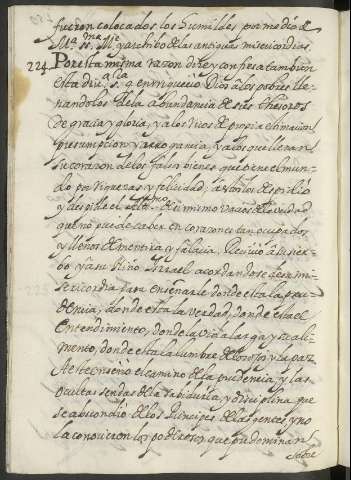 fueron colocados los humildes por medio de
Mª ssma Me y archibo de las antiguas misericordias.
224 Por esta misma razon dixe y confiesa tambien
esta diuª sª q enriqueció Dios a los pobres lle
nandolos de la abundancia de sus thesoros
de gracia y gloria, y a los ricos de propia estimacion
presumpcion y arrogancia, y a los que llenan
su coraçon de los falsos bienes que tiene el mun
do por riquezas y felicidad; a estos los despidio
y despide el mismo vacios de la verdad
que no puede caber en coraçones tan ocupados
y llenos de mentira y falacia. Reciuio a su sier
bo y a su Niño Israel acordandose de su mi
sericordia para enseñarle donde esta la pru-
dencia, donde esta la verdad, donde esta el
entendimiento, donde la vida larga y su ali
mento, donde esta la lumbre de los ojos y la paz
A este enseño el camino de la prudencia, y las
ocultas sendas de la sabiduria, y disciplina que
se abscondió de los Principes de las gentes y no
la conocieron los poderosos que predominan
sobre